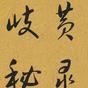 岐黄
秘录